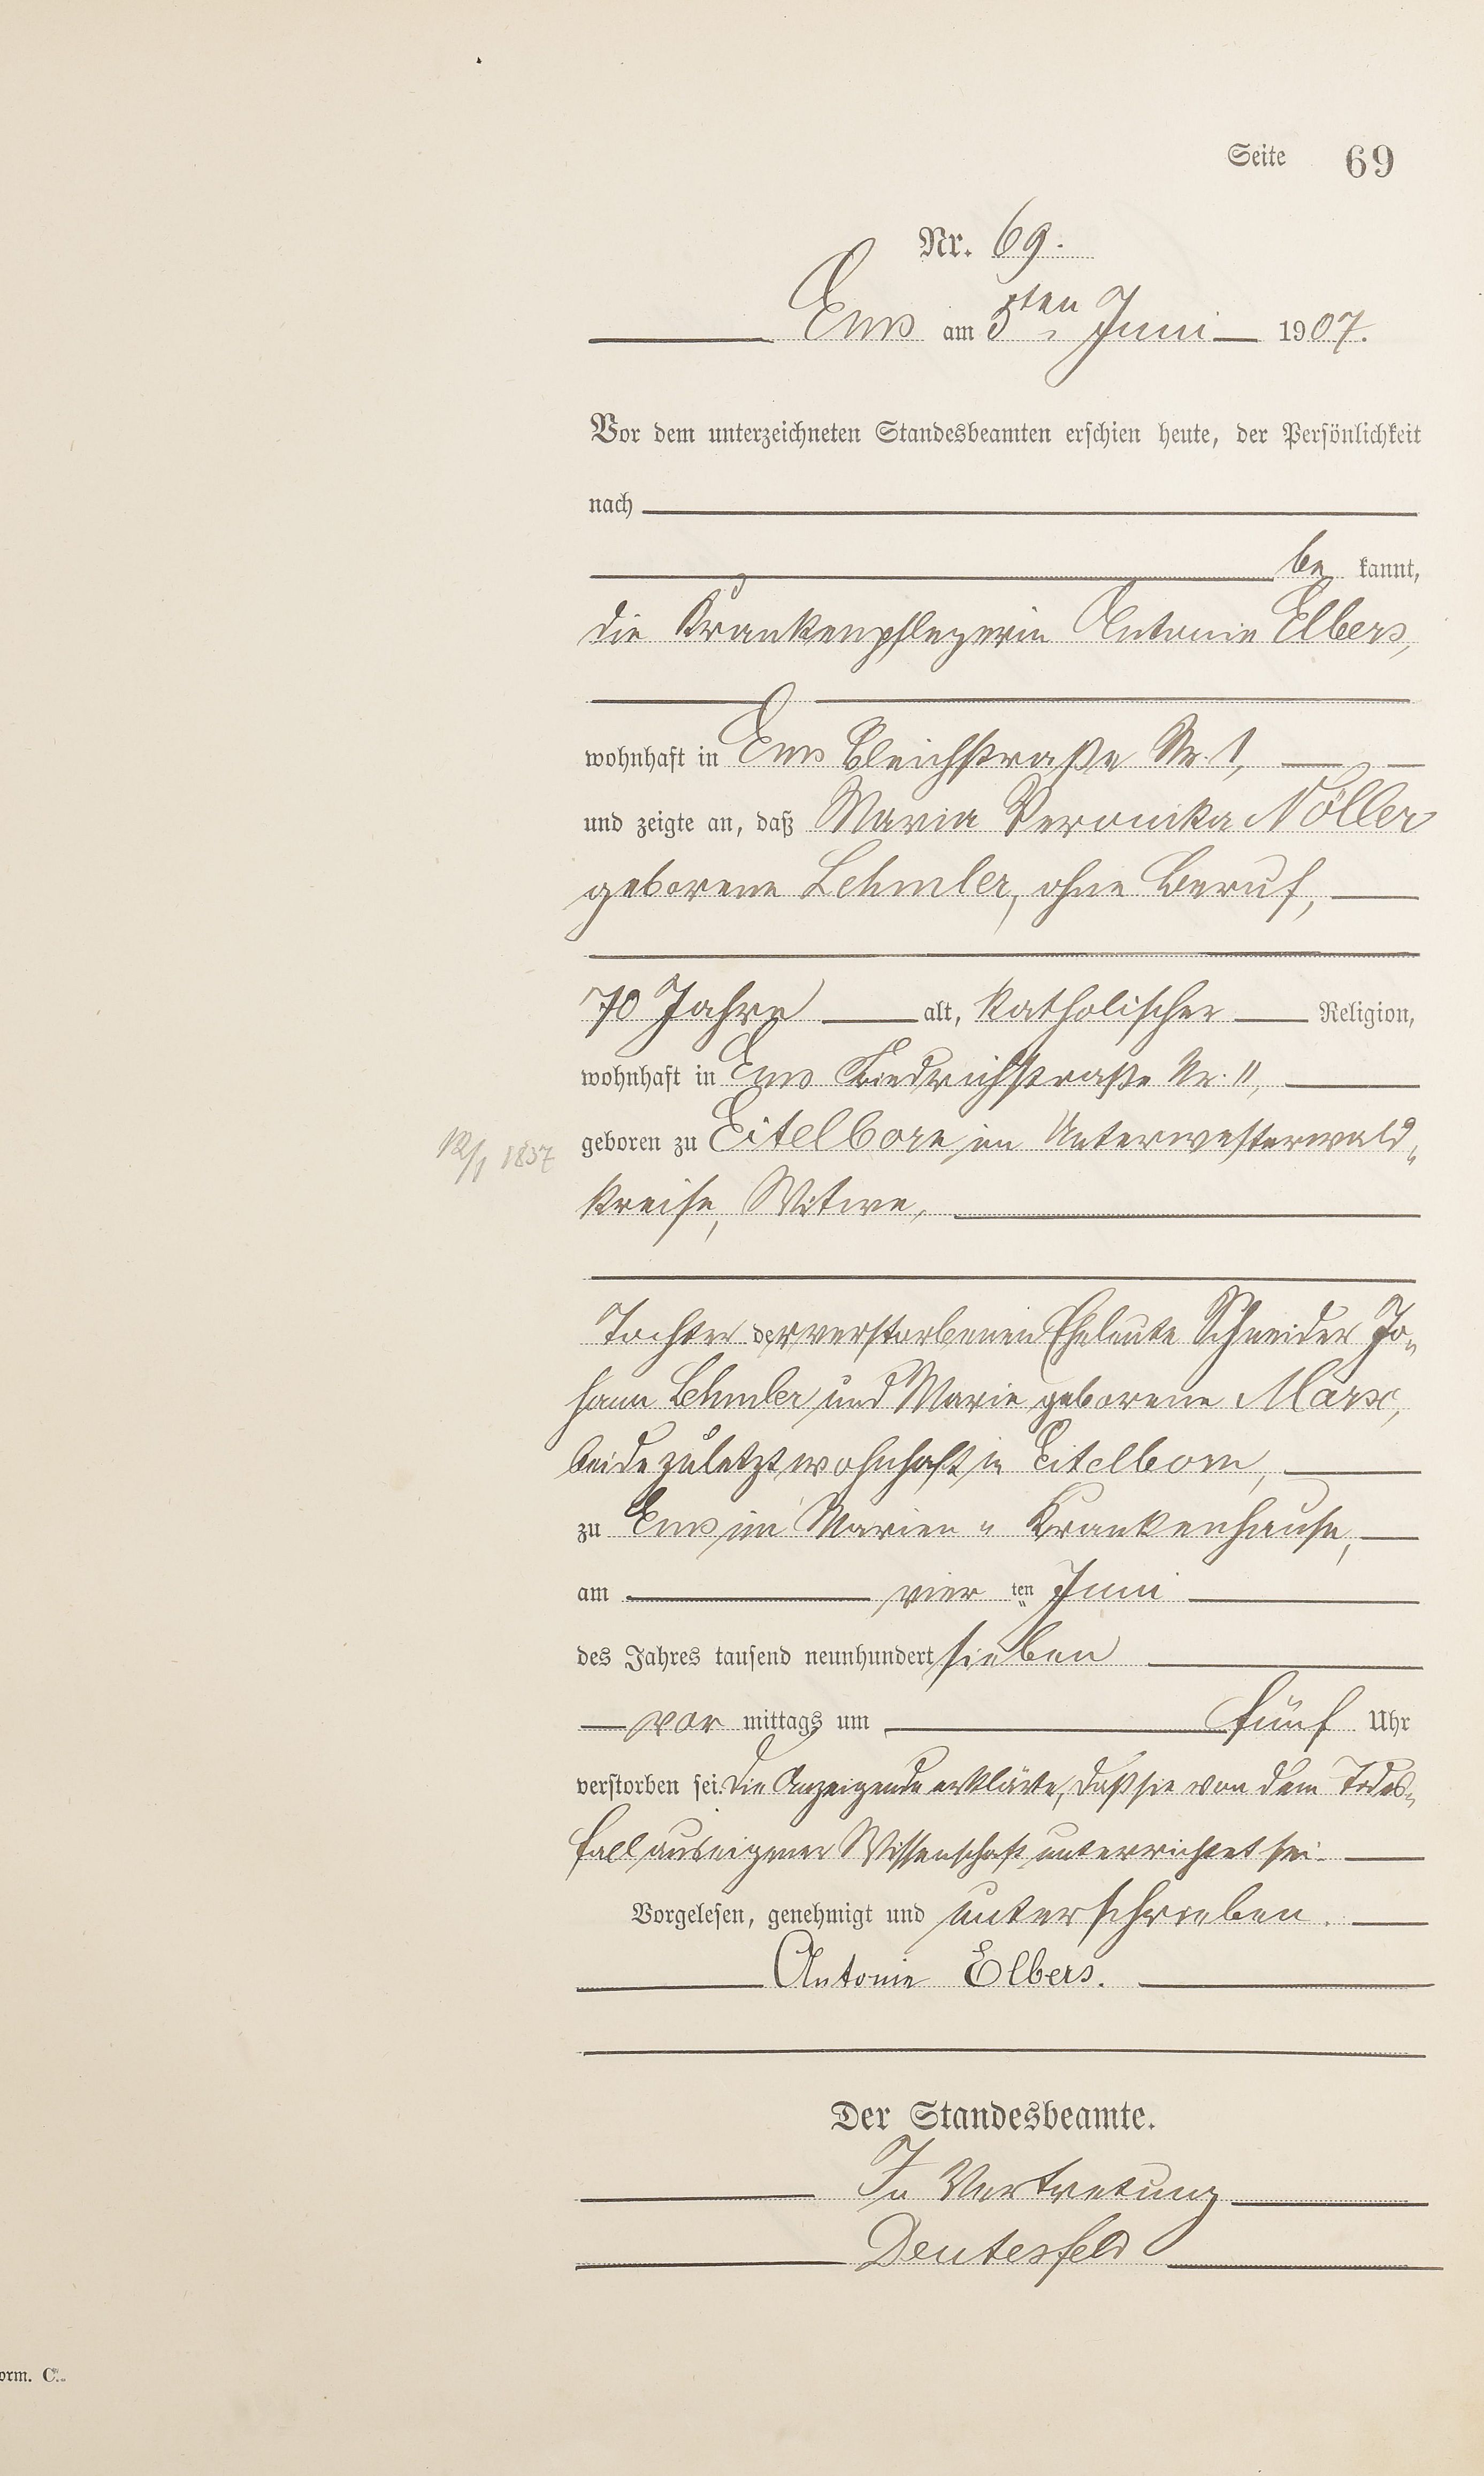 Seite 69
Nr. 69.
Ems am 5ten Juni 1907.
Vor dem unterzeichneten Standesbeamten erschien heute, der Persönlichkeit
nach
be kannt,
die Krankenpflegerin Antonie Elbers,
wohnhaft in Ems Bleichstraße Nr. 1,
und zeigte an, daß Maria Veronika Nöller
geborene Lehmler, ohne Beruf,
70 Jahre alt, katholischer Religion,
wohnhaft in Ems Friedrichstraße Nr. 11,
12/1 1837 geboren zu Eitelborn im Unterwesterwald-
kreise, Witwe,
Tochter der verstorbenen Eheleute Schneider Jo-
hann Lehmler und Marie geborene Marx,
beide zuletzt wohnhaft in Eitelborn,
zu Ems im Marien-Krankenhause,
am vier ten Juni
des Jahres tausend neunhundert sieben
vor mittags um fünf Uhr
verstorben sei. Die Anzeigende erklärte, daß sie von dem Todes-
fall aus eigener Wissenschaft unterrichtet sei.
Vorgelesen, genehmigt und unterschrieben.
Antonie Elbers.
Der Standesbeamte.
In Vertretung
Deutesfeld
orm. C.